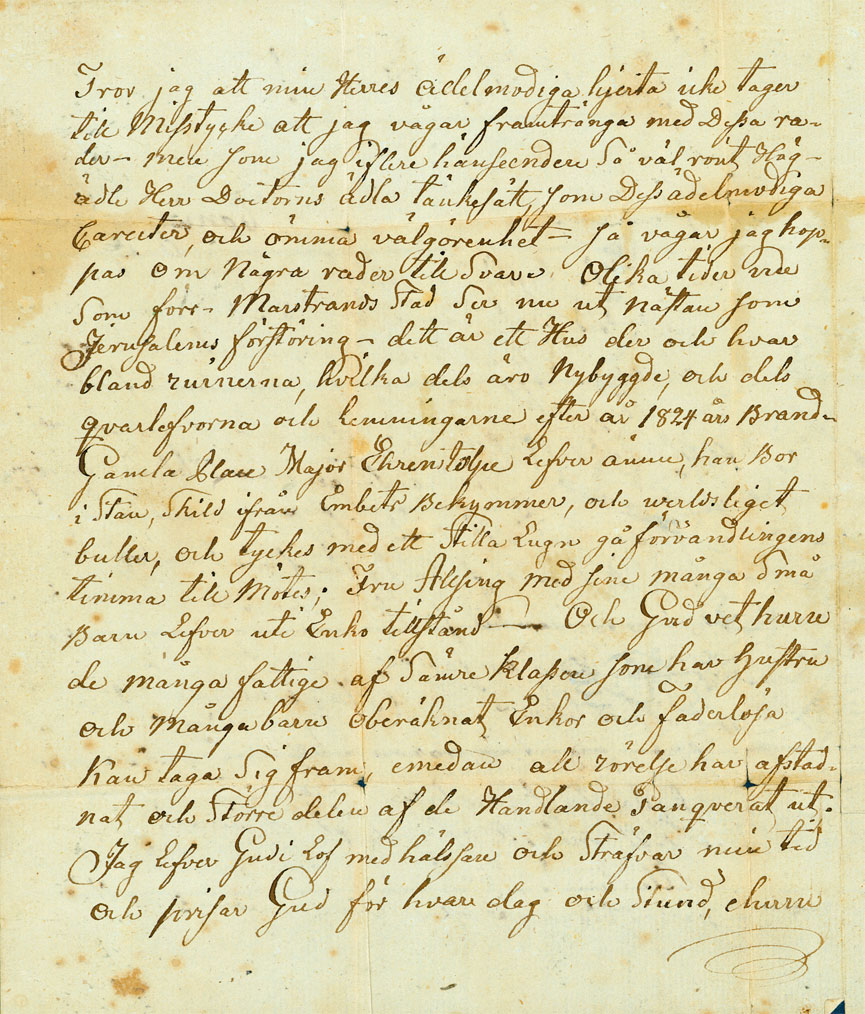 Tror jag att min Herres ädelmodiga hjerta icke tager
till Misstycke att jag vågar framtränga med Dessa ra-
der - men som jag i flere hänseenden Så väl rönt Hög-
ädle Herr Doctorns ädla tänkesätt, som Dess ädelmodiga
Carecter, och ömma välgörenhet - så vågar jag hop-
pas om Några rader till Svar. Olika tider nu
Som förr - Marstrands Stad Ser nu ut nästan som
Jerusalems förstöring - dett är ett Hus der och hvar
bland ruinerna, hvilka dels äro Nybyggde, och dels
qvarlefvorna och lemningarne efter år 1824 års Brand -
Gamla Major Ehrenstolpe Lefver ännu, han Bor
i Stan, Skild ifrån Embets Bekymmer, och werldsliget
buller, och tyckes med ett Stilla Lugn gå förvandlingens
timma till Mötes; Fru Alsing med sine många Små
Barn Lefver uti Enko tillstånd - Och Gud vet huru
de många fattige af Sämre klassen som har Hustru
och Många barn oberäknat Enkor och Faderlösa
Kan taga Sig fram, emedan all rörelse har afstad-
nat och Större delen af de Handlande Panqverat ut.
Jag Lefver Gud i Lof med hälssan och Sträfvar min tid
och prisar Gud för hvar dag och Stund, ehuru